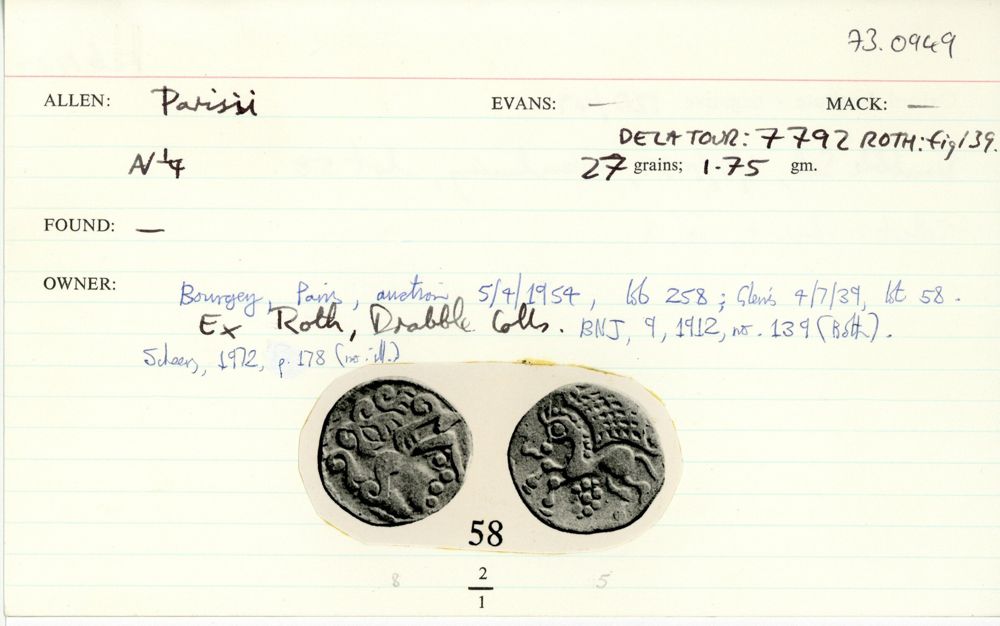 73.0949
ALLEN: Parisii EVANS: — MACK: —
DE LA TOUR: 7792 ROTH: fig 139.
N ¼ 27 grains; 1.75 gm.
FOUND: —
OWNER: Bourgey, Paris, auction 5/4/1954, lot 258; Glen's 4/7/39, lot 58.
Ex Roth, Drabble Colls. BNJ, 9, 1912, no. 139 (Roth).
Scheers, 1972, p. 178 (no ill.)
58
8 2 5
1